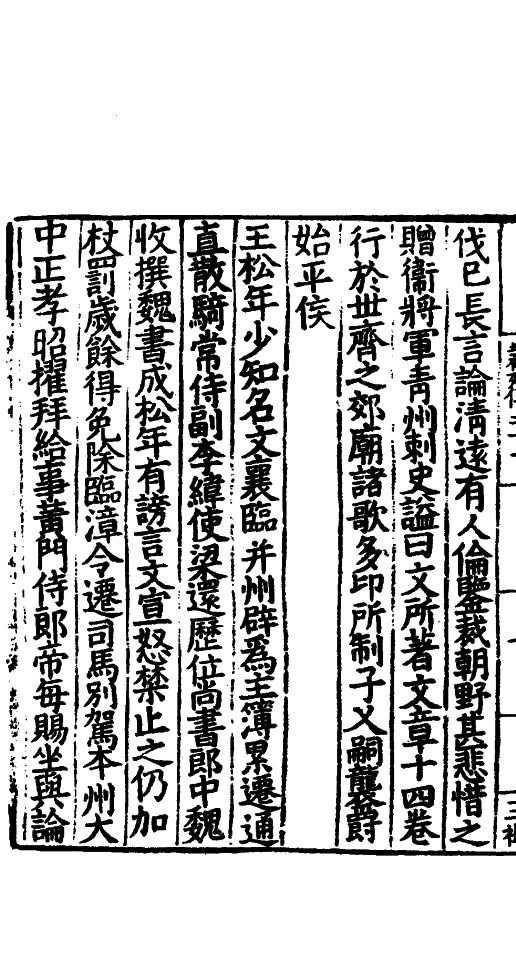 伐已長言論清遠有人倫鑒裁朝野甚悲惜之
贈衞將軍青州刺史謚曰文所著文章十四卷
行於世齊之郊廟諸歌多印所制子乂嗣襲爵
始平侯
王松年少知名文襄臨并州辟爲主簿累遷通
直散騎常侍副李緯使梁還歷位尚書郎中魏
收撰魏書成松年有謗言文宣怒禁止之仍加
杖罰歲餘得免除臨漳令遷司馬別駕本州大
中正孝昭擢拜給事黃門侍郎帝每賜坐與論